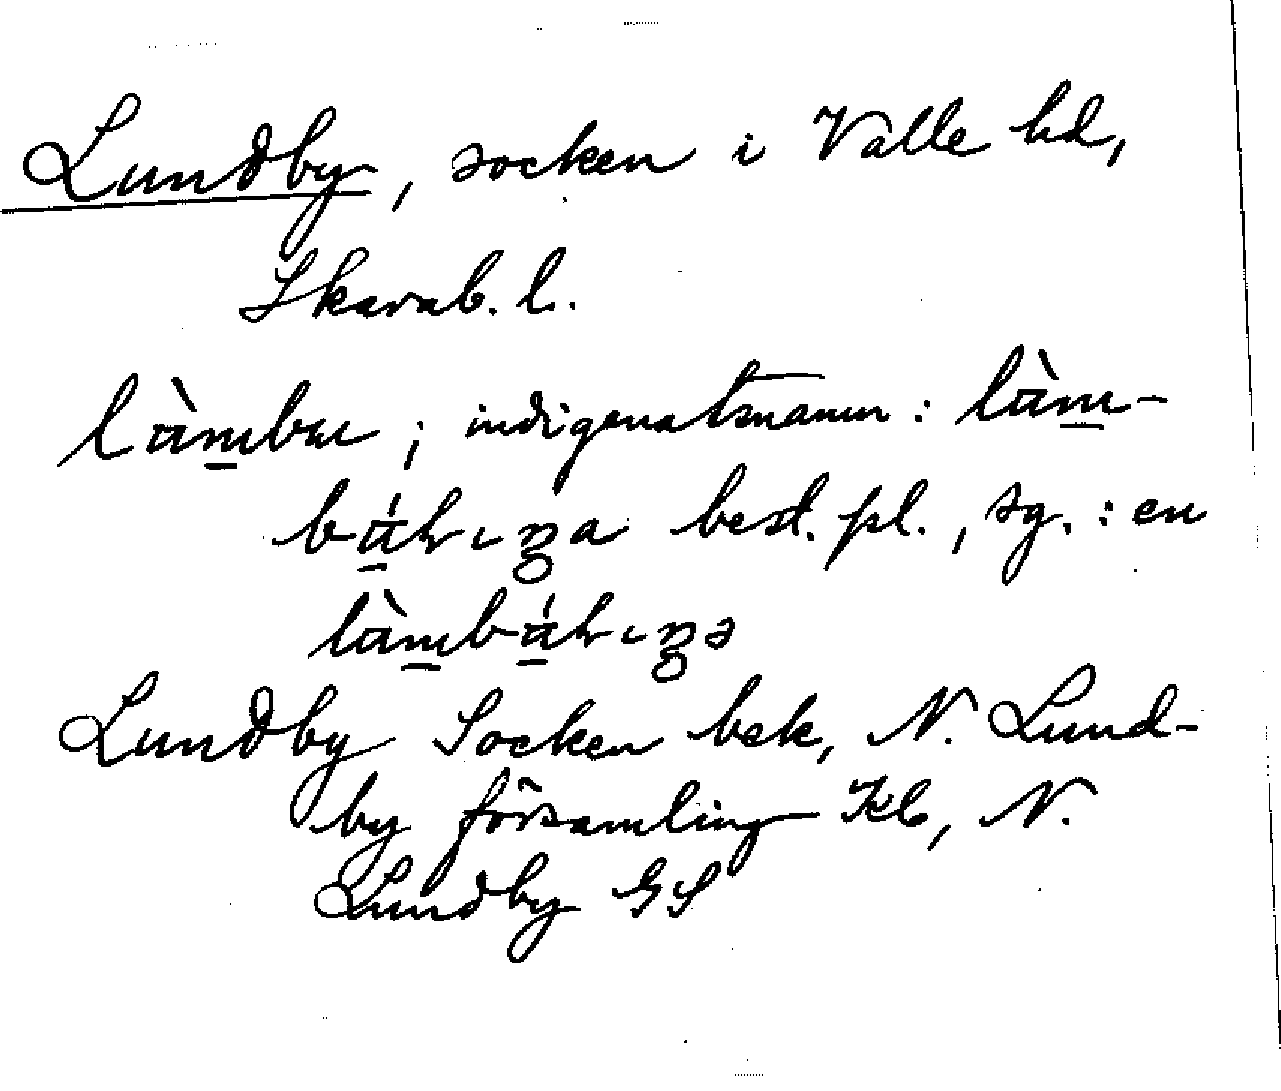 Lundby, socken i Valle hd,
Skarab. l.
làmbu; indigenatsnamn: làm-
best. pl., sg.: en
Lundby Socken bek, N. Lund-
by församling Kb, N.
Lundby GS